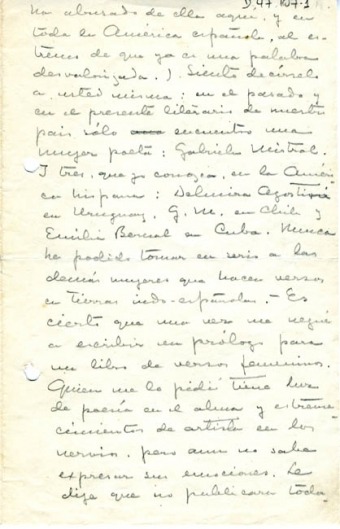 ha abusado de ella aquí, y en
toda la América española, al ex-
tremo de que ya es una palabra
desvalorizada.). Siento decírselo
a usted misma: en el pasado y
en el presente literario de nuestro
país sólo encuentro una
mujer poeta: Gabriela Mistral.
I tres, que yo conozca, en la Améri-
ca hispana: Delmira Agostini
en Uruguay, G. M. en Chile y
Emilia Bernal en Cuba. Nunca
he podido tomar en serio a las
demás mujeres que hacen versos
en tierras indo-españolas.- Es
cierto que una vez me negué
a escribir un prólogo para
un libro de versos femeninos.
Quien me lo pidió tiene luz
de poesía en el alma y estreme-
cimientos de artista en los
nervios, pero aun no sabe
expresar sus emociones. Le
dije que no publicara toda-